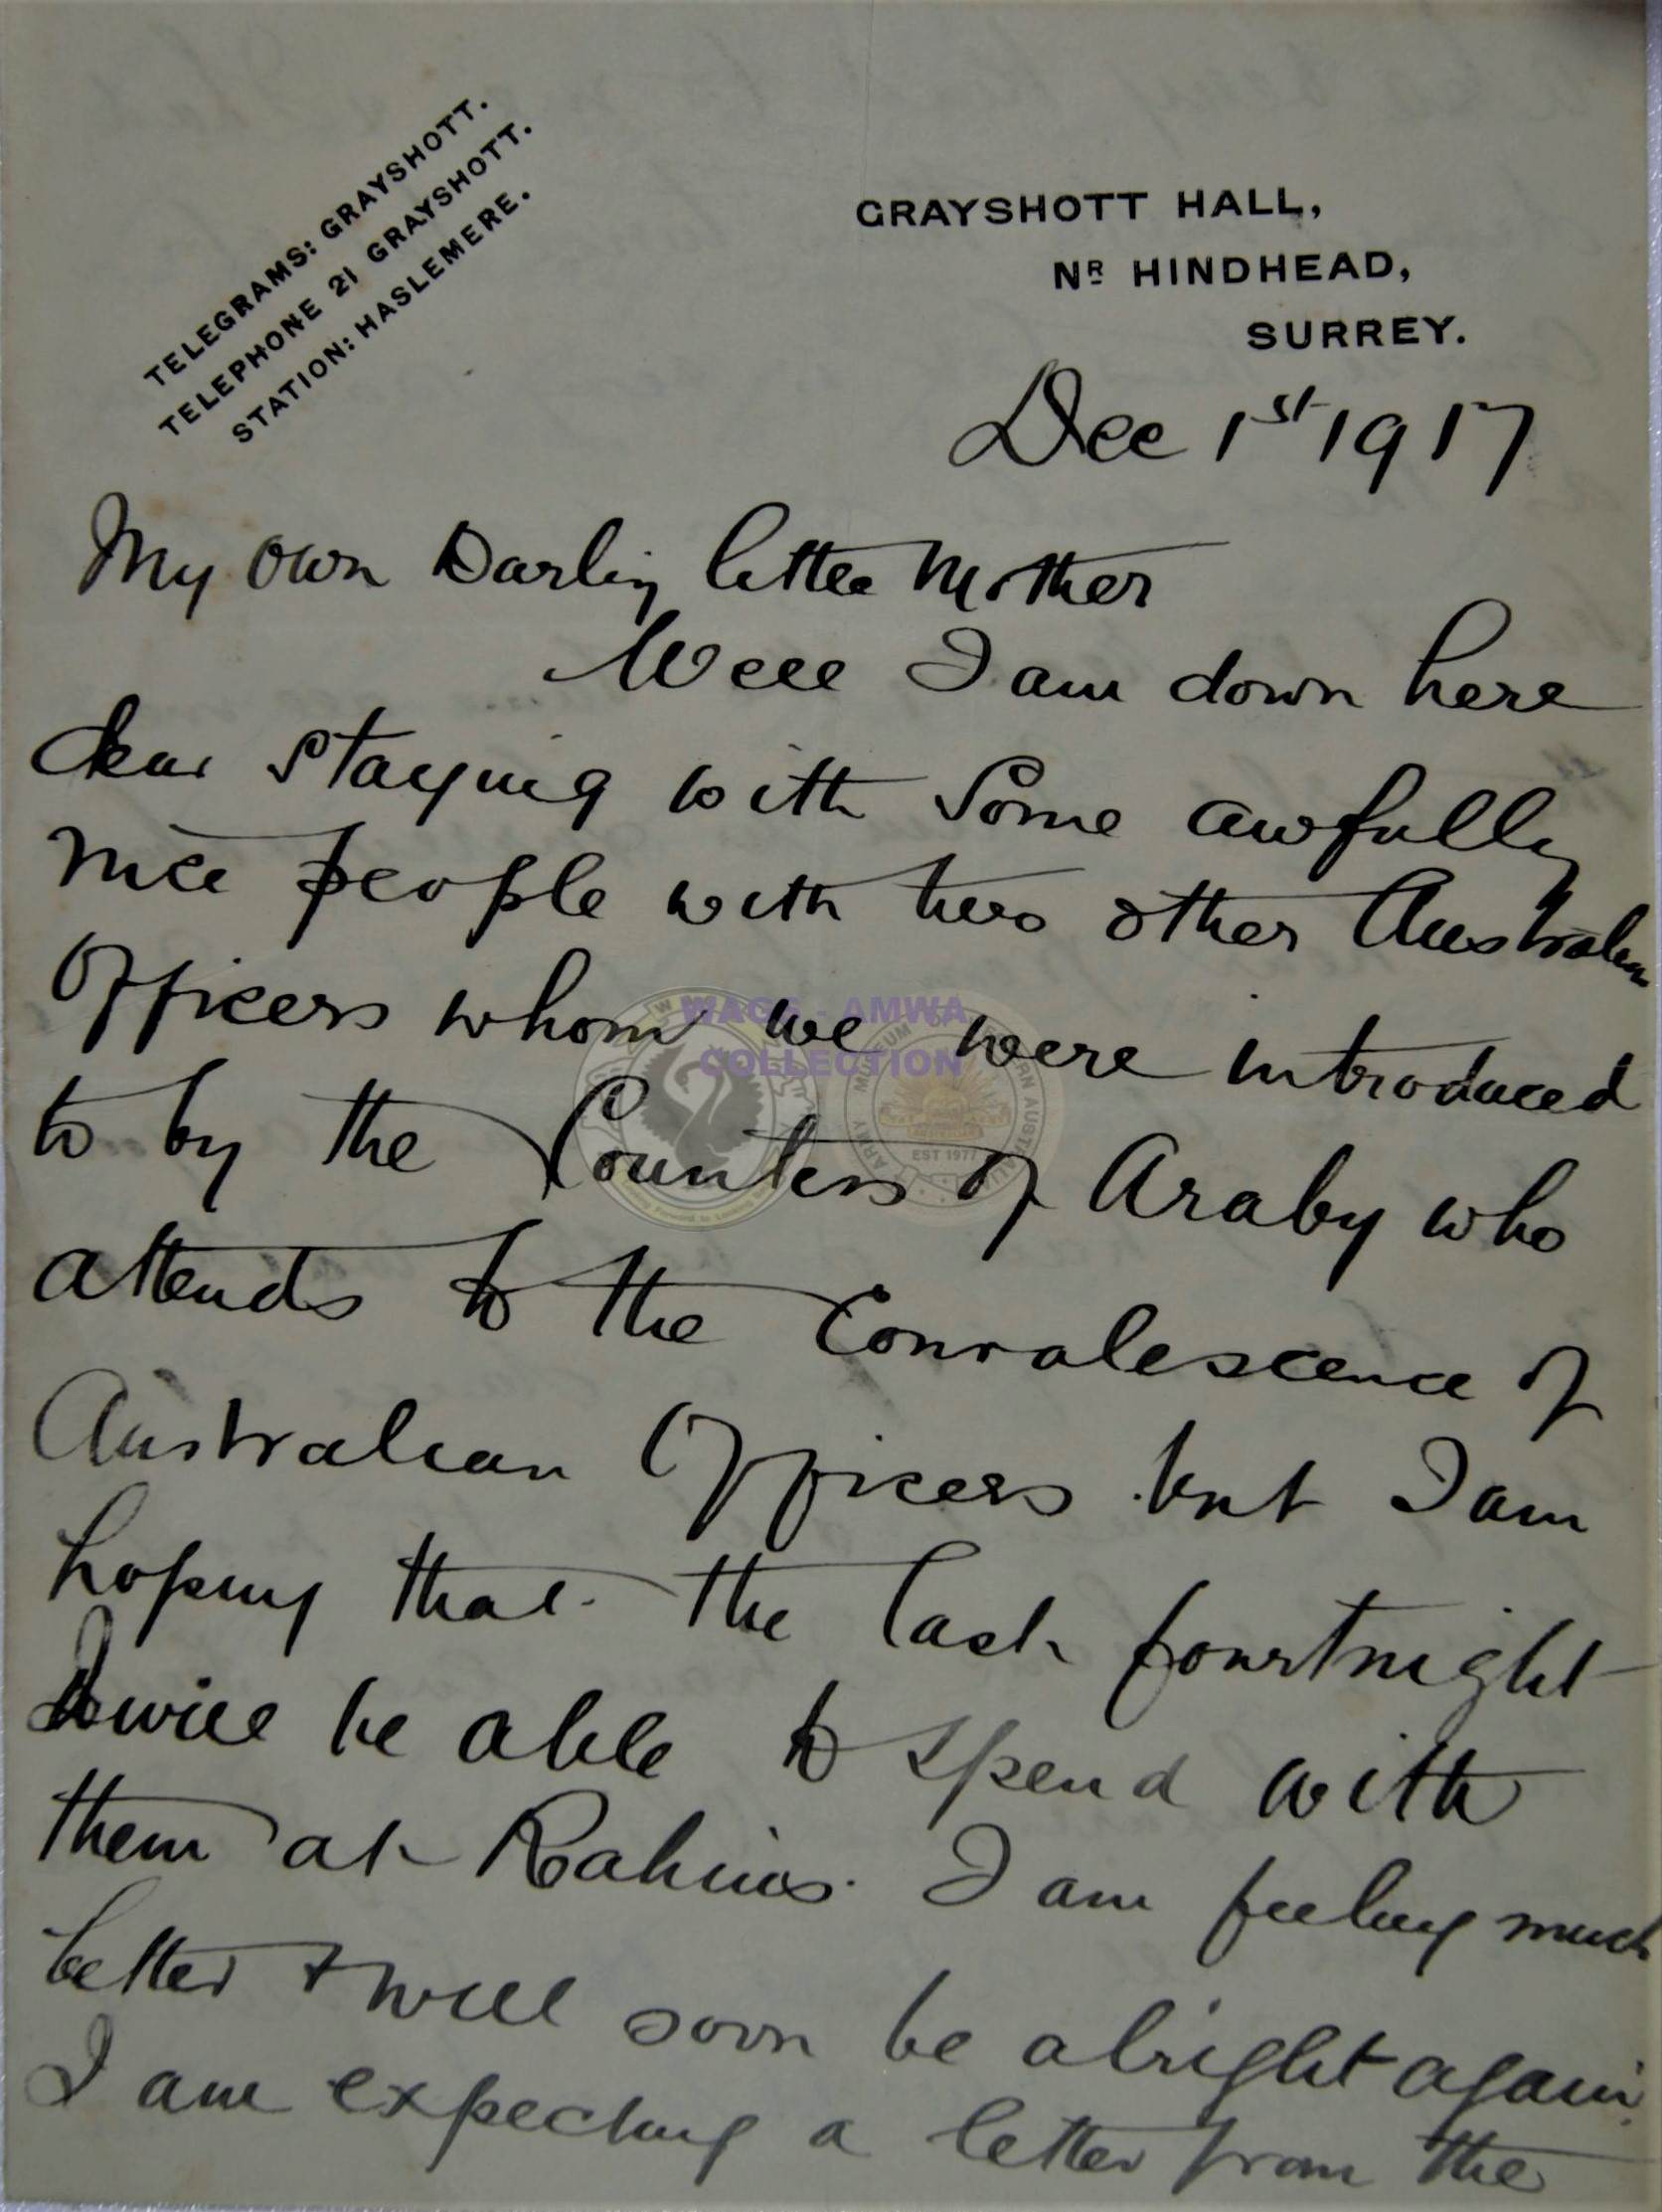 TELEGRAMS: GRAYSHOTT.
TELEPHONE 21 GRAYSHOTT.
STATION: HASLEMERE.
GRAYSHOTT HALL,
NR HINDHEAD,
SURREY.
Dec 1st 1917
My own Darling little Mother
Well I am down here
dear staying with some awfully
nice people with two other Australian
Officers whom we were introduced
to by the Countess of Araby who
attends to the Convalescence of
Australian Officers but I am
hoping that the last fourtnight
I will be able to spend with
them at I am feeling much
better & will soon be alright again.
I am expecting a letter from the
WAGS - AMWA
COLLECTION
EST 1977